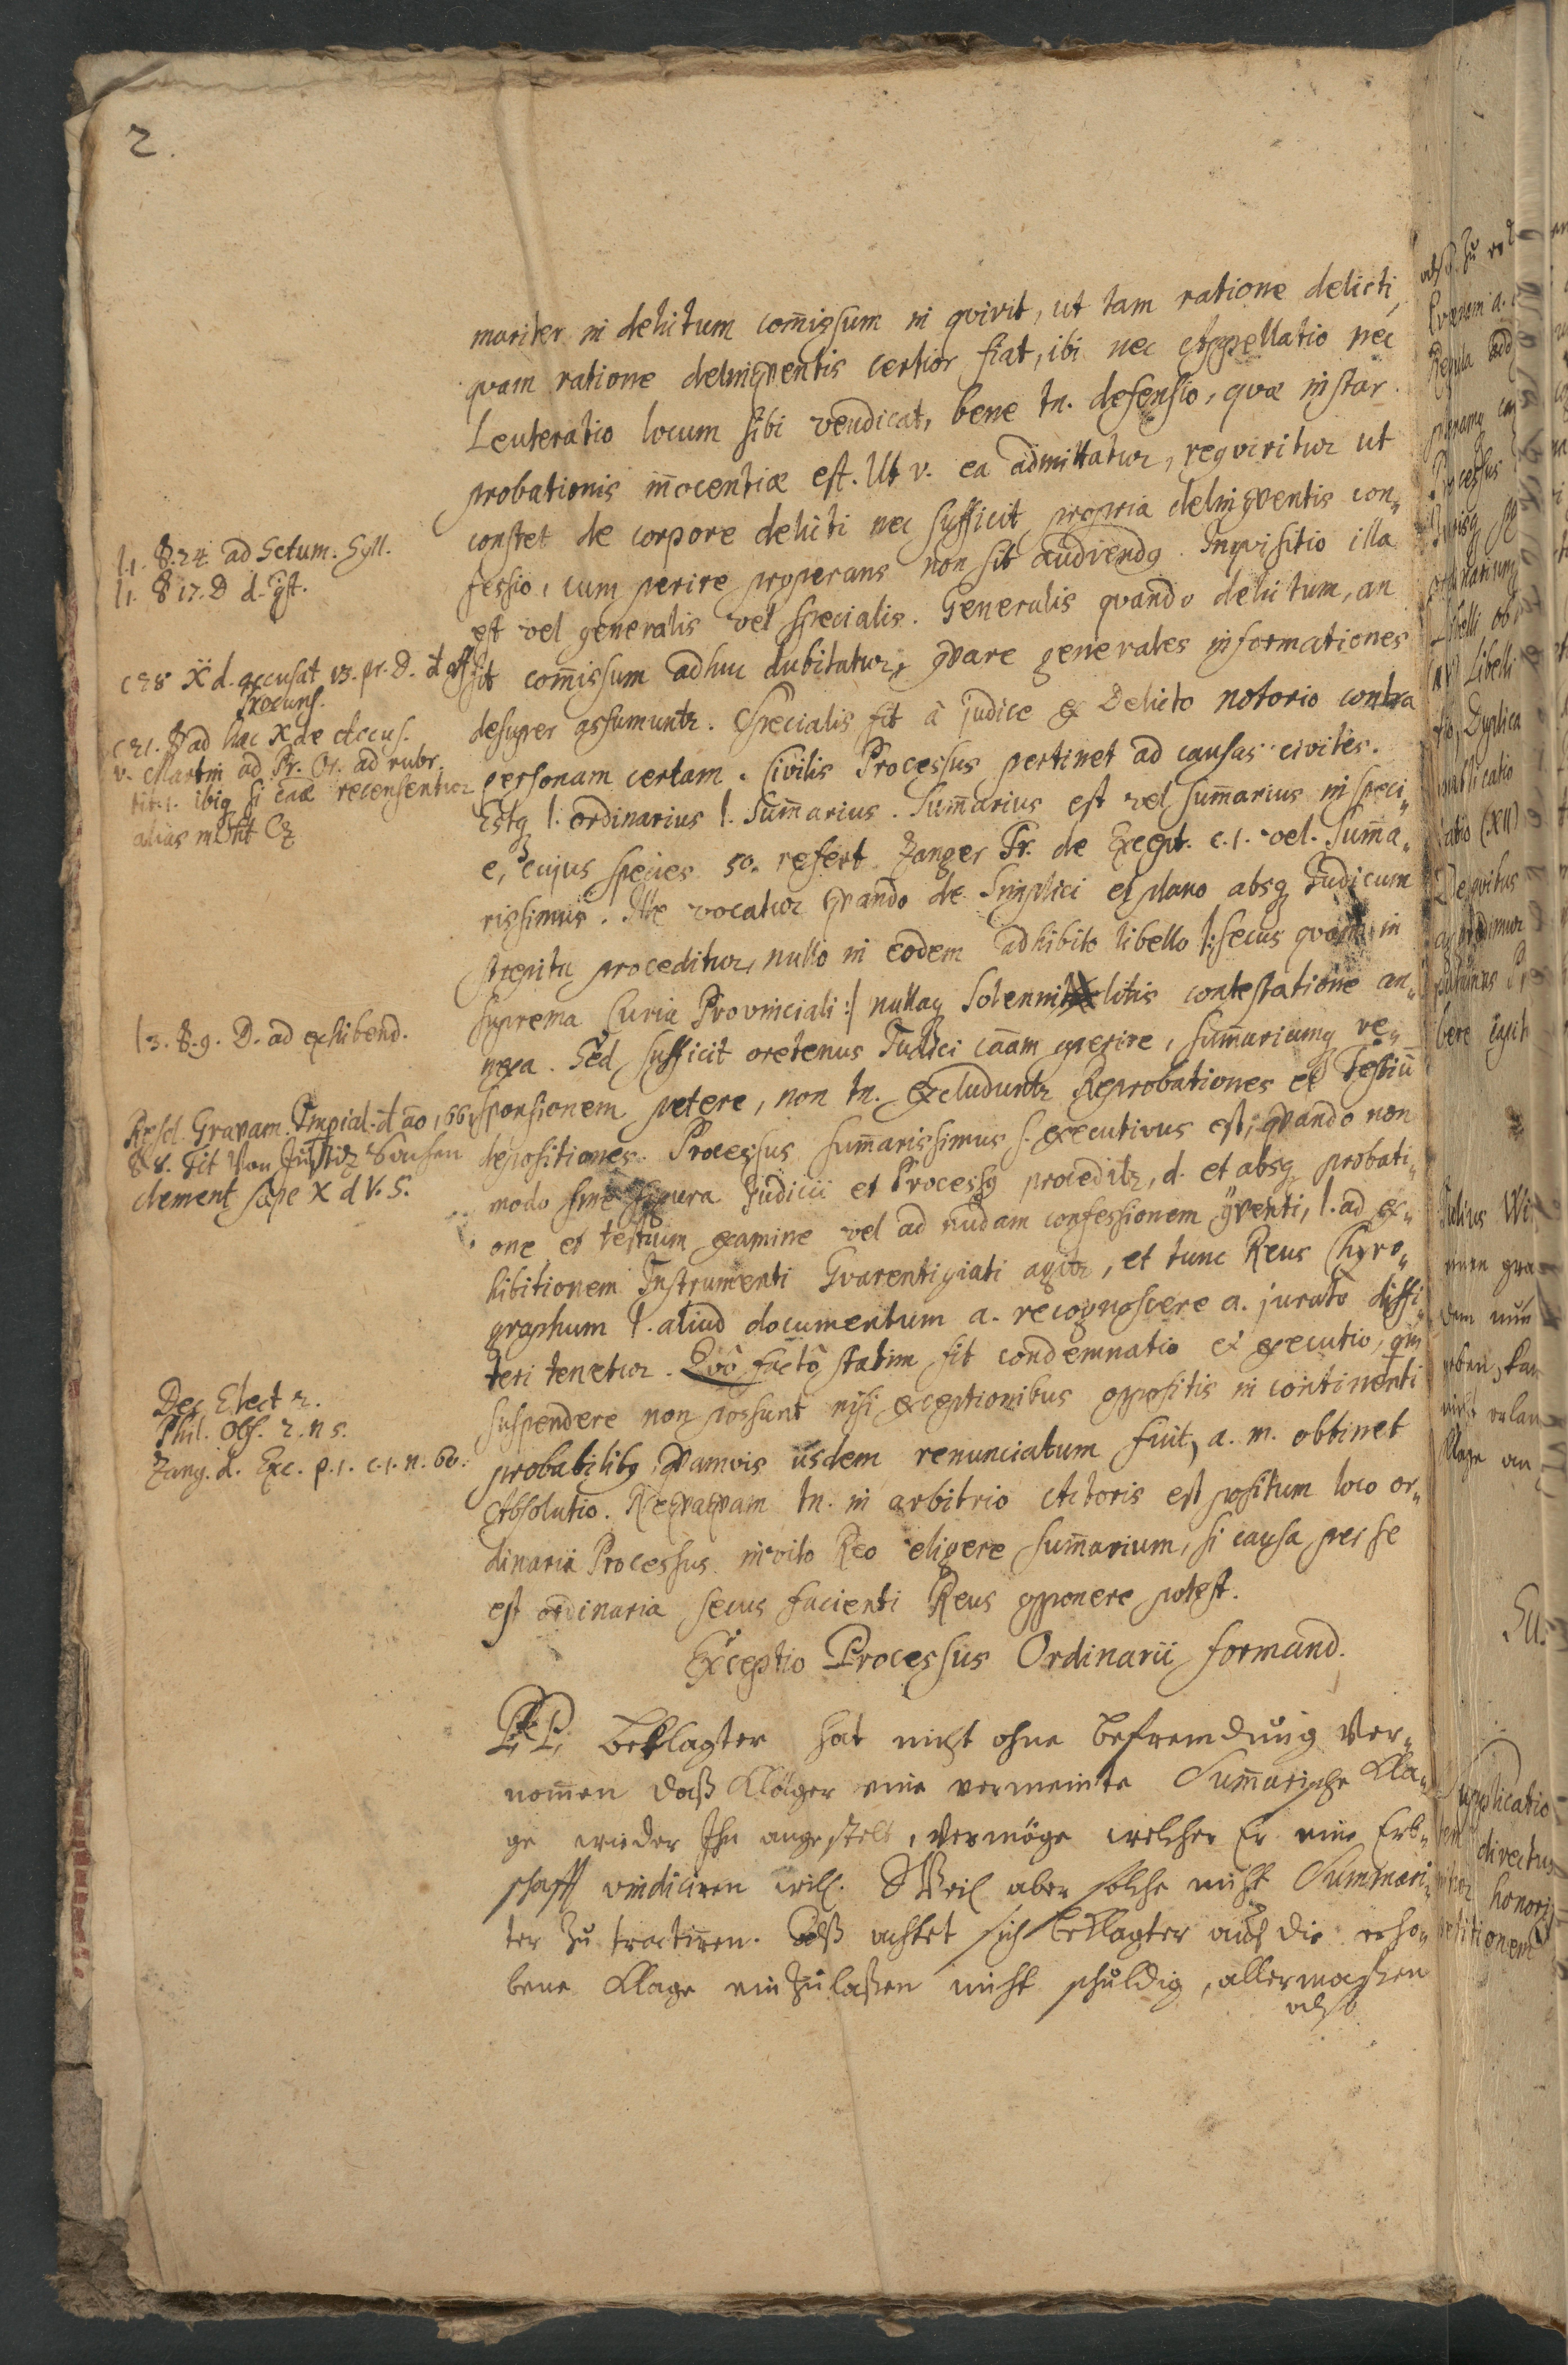 2.
mariter in delictum com̄issum in qvirit, ut tam ratione delicti,
qvam ratione delinqventis certior fiat, ibi nec Appellatio nec
Leuteratio locum sibi vendicat, bene tn. defensio, qvæ instar
probationis iñocentiæ est. Ut v. ea admittatur, reqviritur ut
constet de corpore delicti nec sufficit propria delinqventis con-
fessio, cum perire properans non sit audiendq. Inqvisitio illa
est vel generalis vel specialis. Generalis qvando delictum, an
sit com̄issum adhuc dubitatur, qvare generales informationes
desuper assumuntr. Specialis fit â judice ex Delicto notorio contra
personam certam. Civilis Processus pertinet ad causas civiles.
Estq l. ordinarius l. Sum̄arius. Sum̄arius est vel sum̄arius in speci-
e, cujus species 50. refert Zanger Tr. de Except. c.1. vel Sum̄a-
rissimus. Ille vocatur qvando de Simplici et plano absq Judicum
strepitu proceditur, nullo in eodem adhibito libello |: secus in
suprema Curia Provinciali :| nullaq litis contestatione an-
nexa. Sed sufficit oretenus Judici cāam aperire, sum̄ariamq re-
sponsionem petere, non tn. excluduntr Reprobationes et Testiū
depositiones. Processus sum̄arissimus s. executivus est, qvando non
modo sine figura Judicii et Processq proceditr, d. et absq probati-
one et testium examine vel ad nudam confessionem l. ad ex-
hibitionem Instrumenti Gvarentigiati agitr, et tunc Reus Chyro-
graphum l. aliud documentum a. recognoscere a. juratò diffi-
teri tenetur. Qvô factô statim fit condemnatio et executio, qm
suspendere non possunt nisi exceptionibus oppositis in continenti
probabilibq, qvamvis iisdem renunciatum fuit, a. m. obtinet
Absolutio. Neqvaqvam tn. in arbitrio Actoris est positum loco or-
dinarii Processus invito Reo eligere sum̄arium, si causa per se
est ordinaria secus facienti Reus opponere potest.
Exceptio Processus Ordinarii formand.
P. P. Beklagter hat nicht ohne befremdung Ver-
nom̄en daß Kläger eine vermeinte Sum̄arische Kla-
ge wieder Ihn angestelt, Vermöge welcher Er eine Erb-
schafft vindiciren will. Weil aber solche nicht Summari-
ter zu tractiren. Alß achtet sich beklagter auf die erho-
bene Klage einzulaßen nicht schuldig, allermaßen
also
l.1. §.24 ad Sctum. Syll.
l.1. §17. D d. qst.
c 28 X d. accusat 13. pr. D. d off
Procuns.
c 21. § ad hac X de Accus.
v. Martin ad Pr. Or. ad rubr.
tit.1. ibiq recensentur
l 3. §. 9. D. ad exhibend.
Resol. Gravam. d ão 1661
§8. tit Von Justitz Sachen
clement sæpe X d V. S.
Dec Elect 2.
Phil. Obs. 2. n 5.
Zang. d. Exc. p.1. c.1. n. 60.